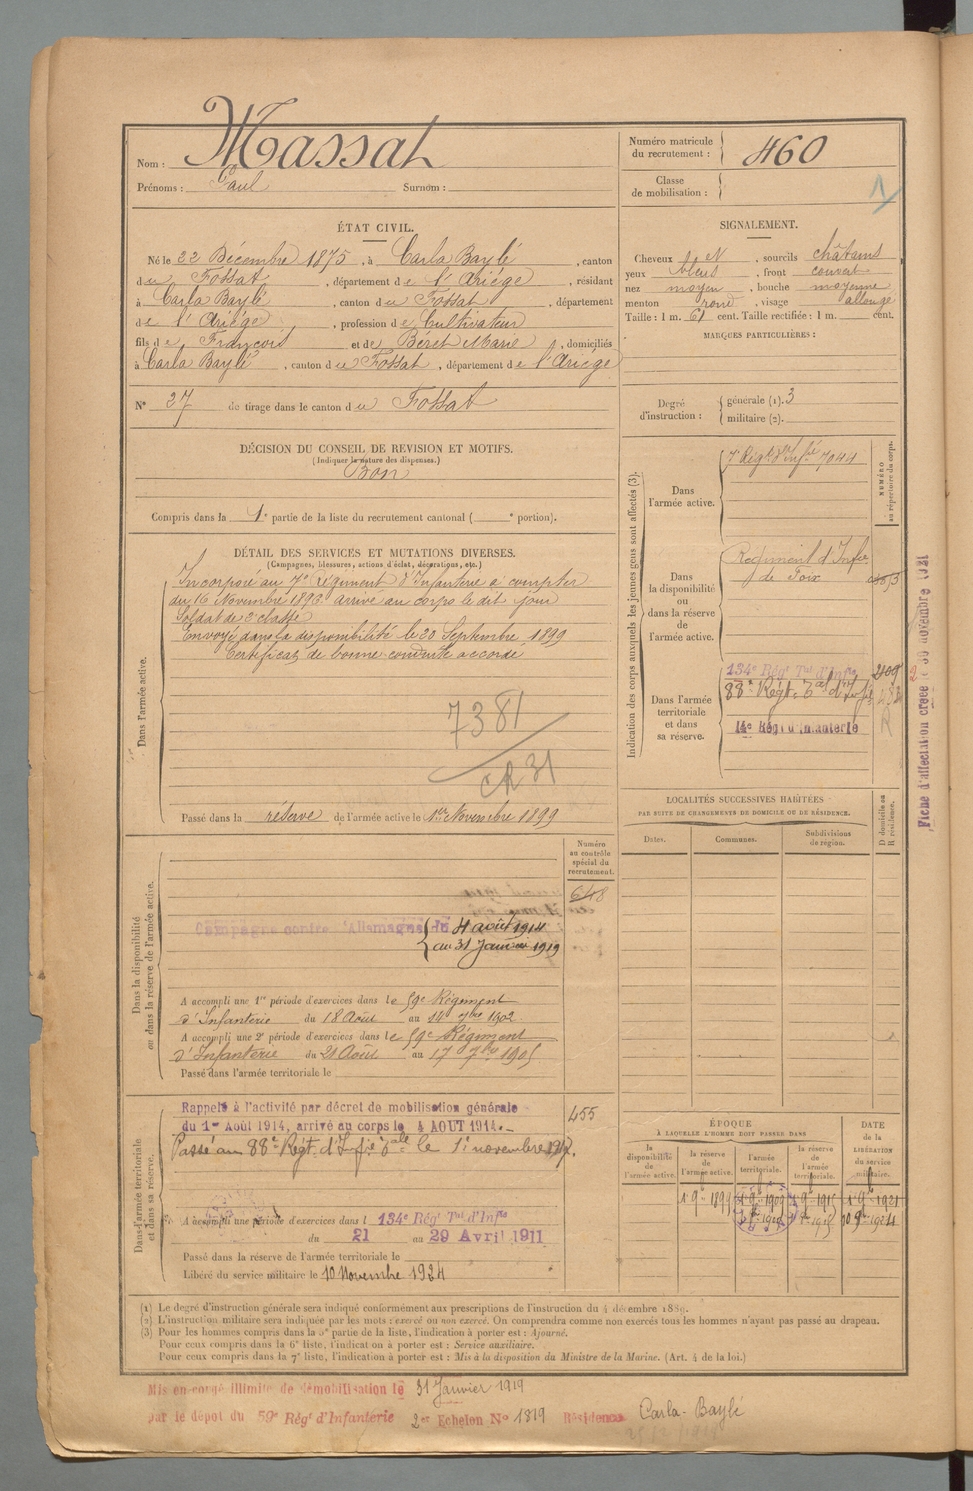 Nom : Massat
Prénoms : Paul Surnom :
Numéro matricule du recrutement : 460
Classe de mobilisation :
1
ÉTAT CIVIL.
Né le 22 Décembre 1875, à Carla Baylé, canton
du Fossat, département de l'Ariège, résidant
à Carla Baylé, canton du Fossat, département
de l'Ariège, profession de Cultivateur
fils de François et de Béret Marie, domiciliés
à Carla Baylé, canton du Fossat, département de l'Ariège
N° 27 de tirage dans le canton du Fossat
SIGNALEMENT.
Cheveux N, sourcils châtains
yeux bleus, front couvert
nez moyen, bouche moyenne
menton rond, visage allongé
Taille : 1 m. 61 cent. Taille rectifiée : 1 m. cent.
MARQUES PARTICULIÈRES :
Degré d'instruction : générale (1). 3
militaire (2).
DÉCISION DU CONSEIL DE REVISION ET MOTIFS.
(Indiquer la nature des dispenses.)
Bon
Compris dans la 1e partie de la liste du recrutement cantonal ( e portion).
DÉTAIL DES SERVICES ET MUTATIONS DIVERSES.
(Campagnes, blessures, actions d'éclat, décorations, etc.)
Dans l'armée active.
Incorporé au 7e régiment d'Infanterie à compter
du 16 Novembre 1896 arrivé au corps le dit jour
Soldat de 2e classe
Envoyé dans la disponibilité le 20 Septembre 1899
Certificat de bonne conduite accordé
7381
CR 31
Passé dans la réserve de l'armée active le 1er Novembre 1899
Indication des corps auxquels les jeunes gens sont affectés (3).
NUMÉRO au répertoire du corps.
Dans l'armée active.
7e Régt d'Infie 7044
Dans la disponibilité ou dans la réserve de l'armée active.
Régiment d'Infie
de Foix
Dans l'armée territoriale et dans sa réserve.
134e Régt Tal d'Infie 209
88e Régt Tal d'Infie
14e Régt d'Infanterie
R
Fiche d'affectation créée le 30 novembre 1921
LOCALITÉS SUCCESSIVES HABITÉES
PAR SUITE DE CHANGEMENTS DE DOMICILE OU DE RÉSIDENCE.
Dates. Communes. Subdivisions de région. D domicile ou R résidence.
Dans la disponibilité ou dans la réserve de l'armée active.
Numéro au contrôle spécial du recrutement.
648
Campagne contre l'Allemagne du 4 août 1914
au 31 Janvier 1919
A accompli une 1re période d'exercices dans le 59e Régiment
d'Infanterie du 18 Août au 14 7bre 1902
A accompli une 2e période d'exercices dans le 59e Régiment
d'Infanterie du 21 Août au 17 7bre 1905
Passé dans l'armée territoriale le
Dans l'armée territoriale et dans sa réserve.
Rappelé à l'activité par décret de mobilisation générale
du 1er Août 1914, arrivé au corps le 4 AOUT 1914.
455
Passé au 88e Régt. d'Infie Tale le 1er novembre 1917.
A accompli une période d'exercices dans l 134e Régt Tal d'Infie
du 21 au 29 Avril 1911
Passé dans la réserve de l'armée territoriale le
Libéré du service militaire le 10 Novembre 1924
ÉPOQUE
À LAQUELLE L'HOMME DOIT PASSER DANS
DATE de la LIBÉRATION du service militaire.
la disponibilité de l'armée active. la réserve de l'armée active. l'armée territoriale. la réserve de l'armée territoriale.
1 9bre 1899 1 9bre 1909 1 9bre 1915 1 9bre 1921
(1) Le degré d'instruction générale sera indiqué conformément aux prescriptions de l'instruction du 4 décembre 1889.
(2) L'instruction militaire sera indiquée par les mots : exercé ou non exercé. On comprendra comme non exercés tous les hommes n'ayant pas passé au drapeau.
(3) Pour les hommes compris dans la 5e partie de la liste, l'indication à porter est : Ajourné.
Pour ceux compris dans la 6e liste, l'indication à porter est : Service auxiliaire.
Pour ceux compris dans la 7e liste, l'indication à porter est : Mis à la disposition du Ministre de la Marine. (Art. 4 de la loi.)
Mis en congé illimité de démobilisation le 31 Janvier 1919
par le dépot du 59e Régt d'Infanterie 2er Echelon N° 1819 Résidence Carla-Baylé